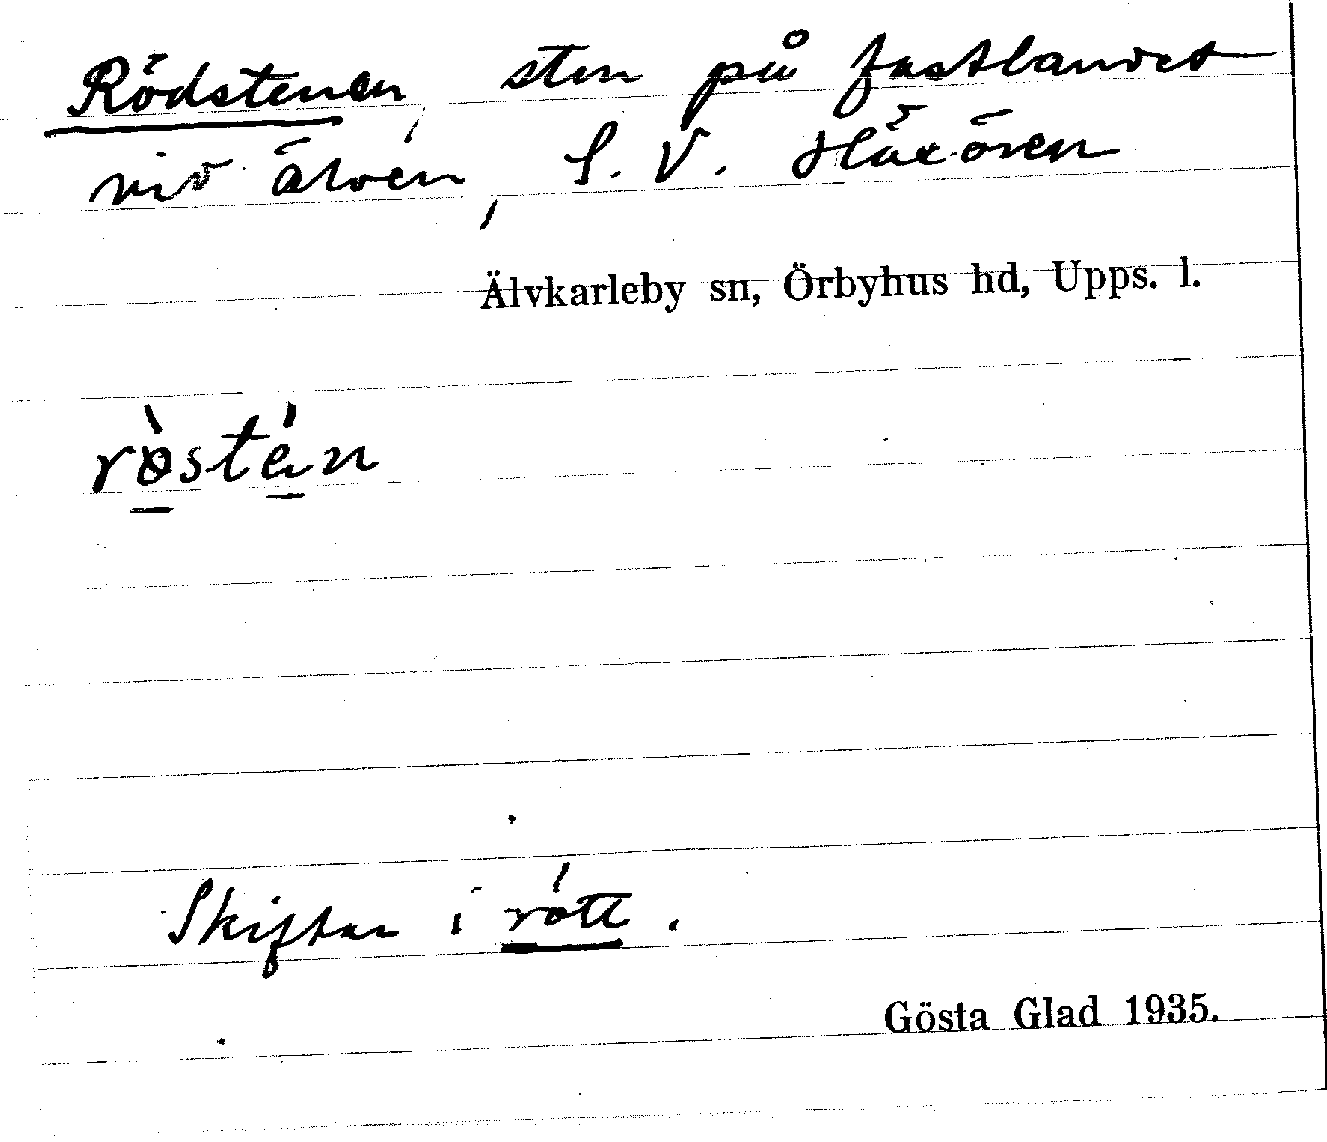 Rödstenen, sten på fastlandet
vid älven, S.V. Häxören
Älvkarleby sn, Örbyhus hd, Upps. l.
rö̀sté̱n
Skiftar i rött.
Gösta Glad 1935.